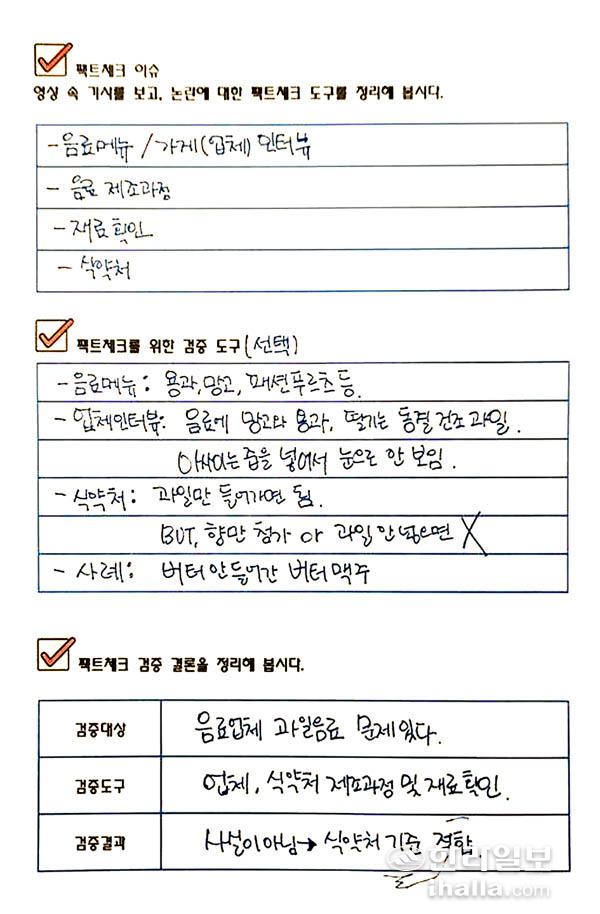 팩트체크 이슈
영상 속 기사를 보고, 논란에 대한 팩트체크 도구를 정리해 봅시다.
- 음료메뉴 / 가게(업체) 인터뷰
- 음료 제조과정
- 재료확인
- 식약처
팩트체크를 위한 검증 도구(선택)
- 음료메뉴 : 용과, 망고, 패션푸르츠 등.
- 업체인터뷰: 음료에 망고와 용과, 딸기는 동결건조과일.
아싸이는 즙을 넣어서 눈으로 안 보임.
- 식약처 : 과일만 들어가면 됨.
BUT, 향만 첨가 or 과일 안 넣으면 X
- 사례: 버터 안 들어간 버터맥주
팩트체크 검증 결론을 정리해 봅시다.
검증대상 음료업체 과일음료 문제있다.
검증도구 업체, 식약처 제조과정 및 재료확인.
검증결과 사실이 아님→ 식약처 기준 적합.
한라일보
ihalla.com